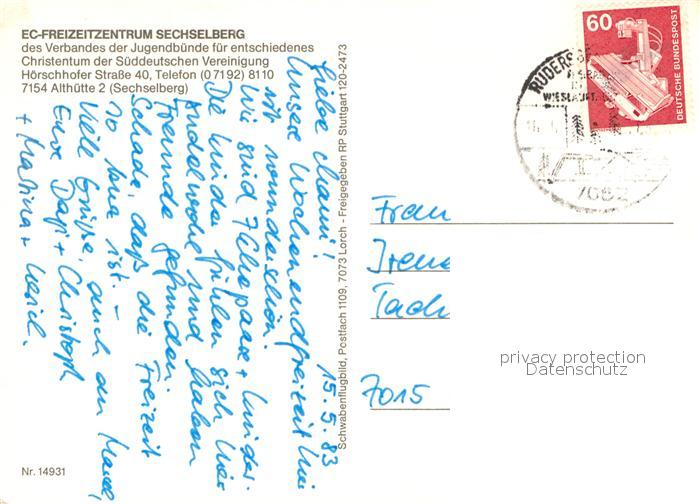 EC-FREIZEITZENTRUM SECHSELBERG
des Verbandes der Jugendbünde für entschiedenes
Christentum der Süddeutschen Vereinigung
Hörschhofer Straße 40, Telefon (0 71 92) 81 10
7154 Althütte 2 (Sechselberg)
15.5.83
Liebe Mami!
Unsere Wochenendfreizeit hier
ist wunderschön.
Wir sind 7 Ehepaare + Kinder.
Die Kinder fühlen sich hier
sauwohl und haben
Freunde gefunden.
Schade, daß die Freizeit
so kurz ist. –
Viele Grüße, auch an
Eure Dagi + Christoph
+ Martina +
Schwabenflugbild, Postfach 1109, 7073 Lorch - Freigegeben RP Stuttgart 120-2473
Nr. 14931
60
DEUTSCHE BUNDESPOST
7062
Frau
Irene
7015
privacy protection
Datenschutz